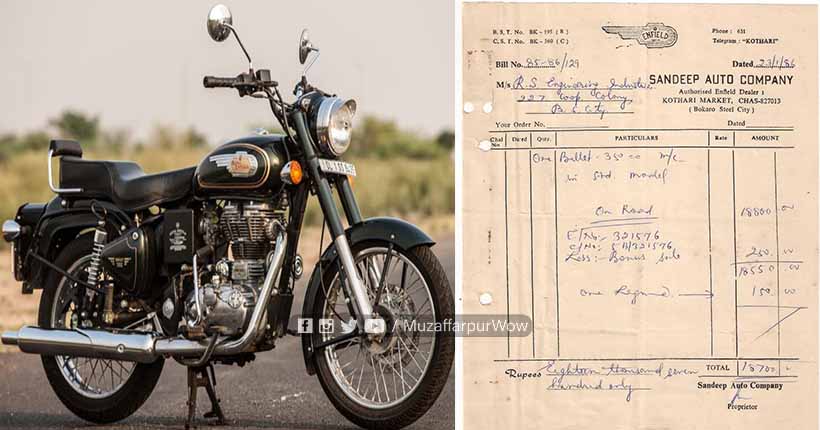 / MuzaffarpurWow
B. S. T. No. BK - 195 ( R )
C. S. T. No. BK - 360 ( C )
ENFIELD
Phone : 631
Telegram : "KOTHARI"
Bill No. 85-86/129
Dated 23/1/86
M/s R.S. Engineering Industries
227 Coop. Colony
B. S. City
SANDEEP AUTO COMPANY
Authorised Enfield Dealer :
KOTHARI MARKET, CHAS-827013
( Bokaro Steel City )
Your Order No.
Dated
Chal No. Dated Qnty. PARTICULARS Rate AMOUNT
One Bullet - 350 cc m/c
in Std. Model
On Road 18800 00
E/No:- 321576
C/No:- 5B/321576
Less:- Bonus 250.00
18550.00
One 150 00
TOTAL 18700
Rupees Eighteen thousand seven
hundred only
Sandeep Auto Company
Proprietor